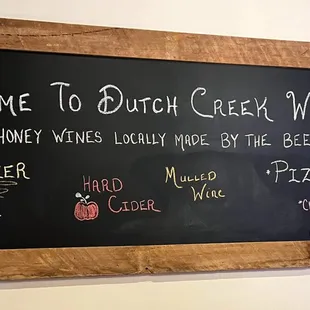 ME TO DUTCH CREEK W
HONEY WINES LOCALLY MADE BY THE BEE
EER
HARD
CIDER
MULLED
WINE
• PIZ